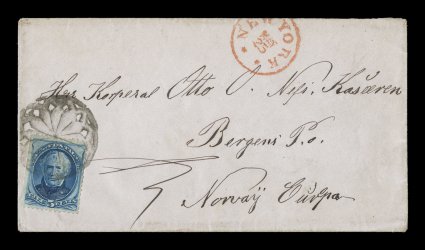 NEW YORK
Herr Korporal Otto O. Nesi. Kaséeren
Bergens P.o.
Norway Európa